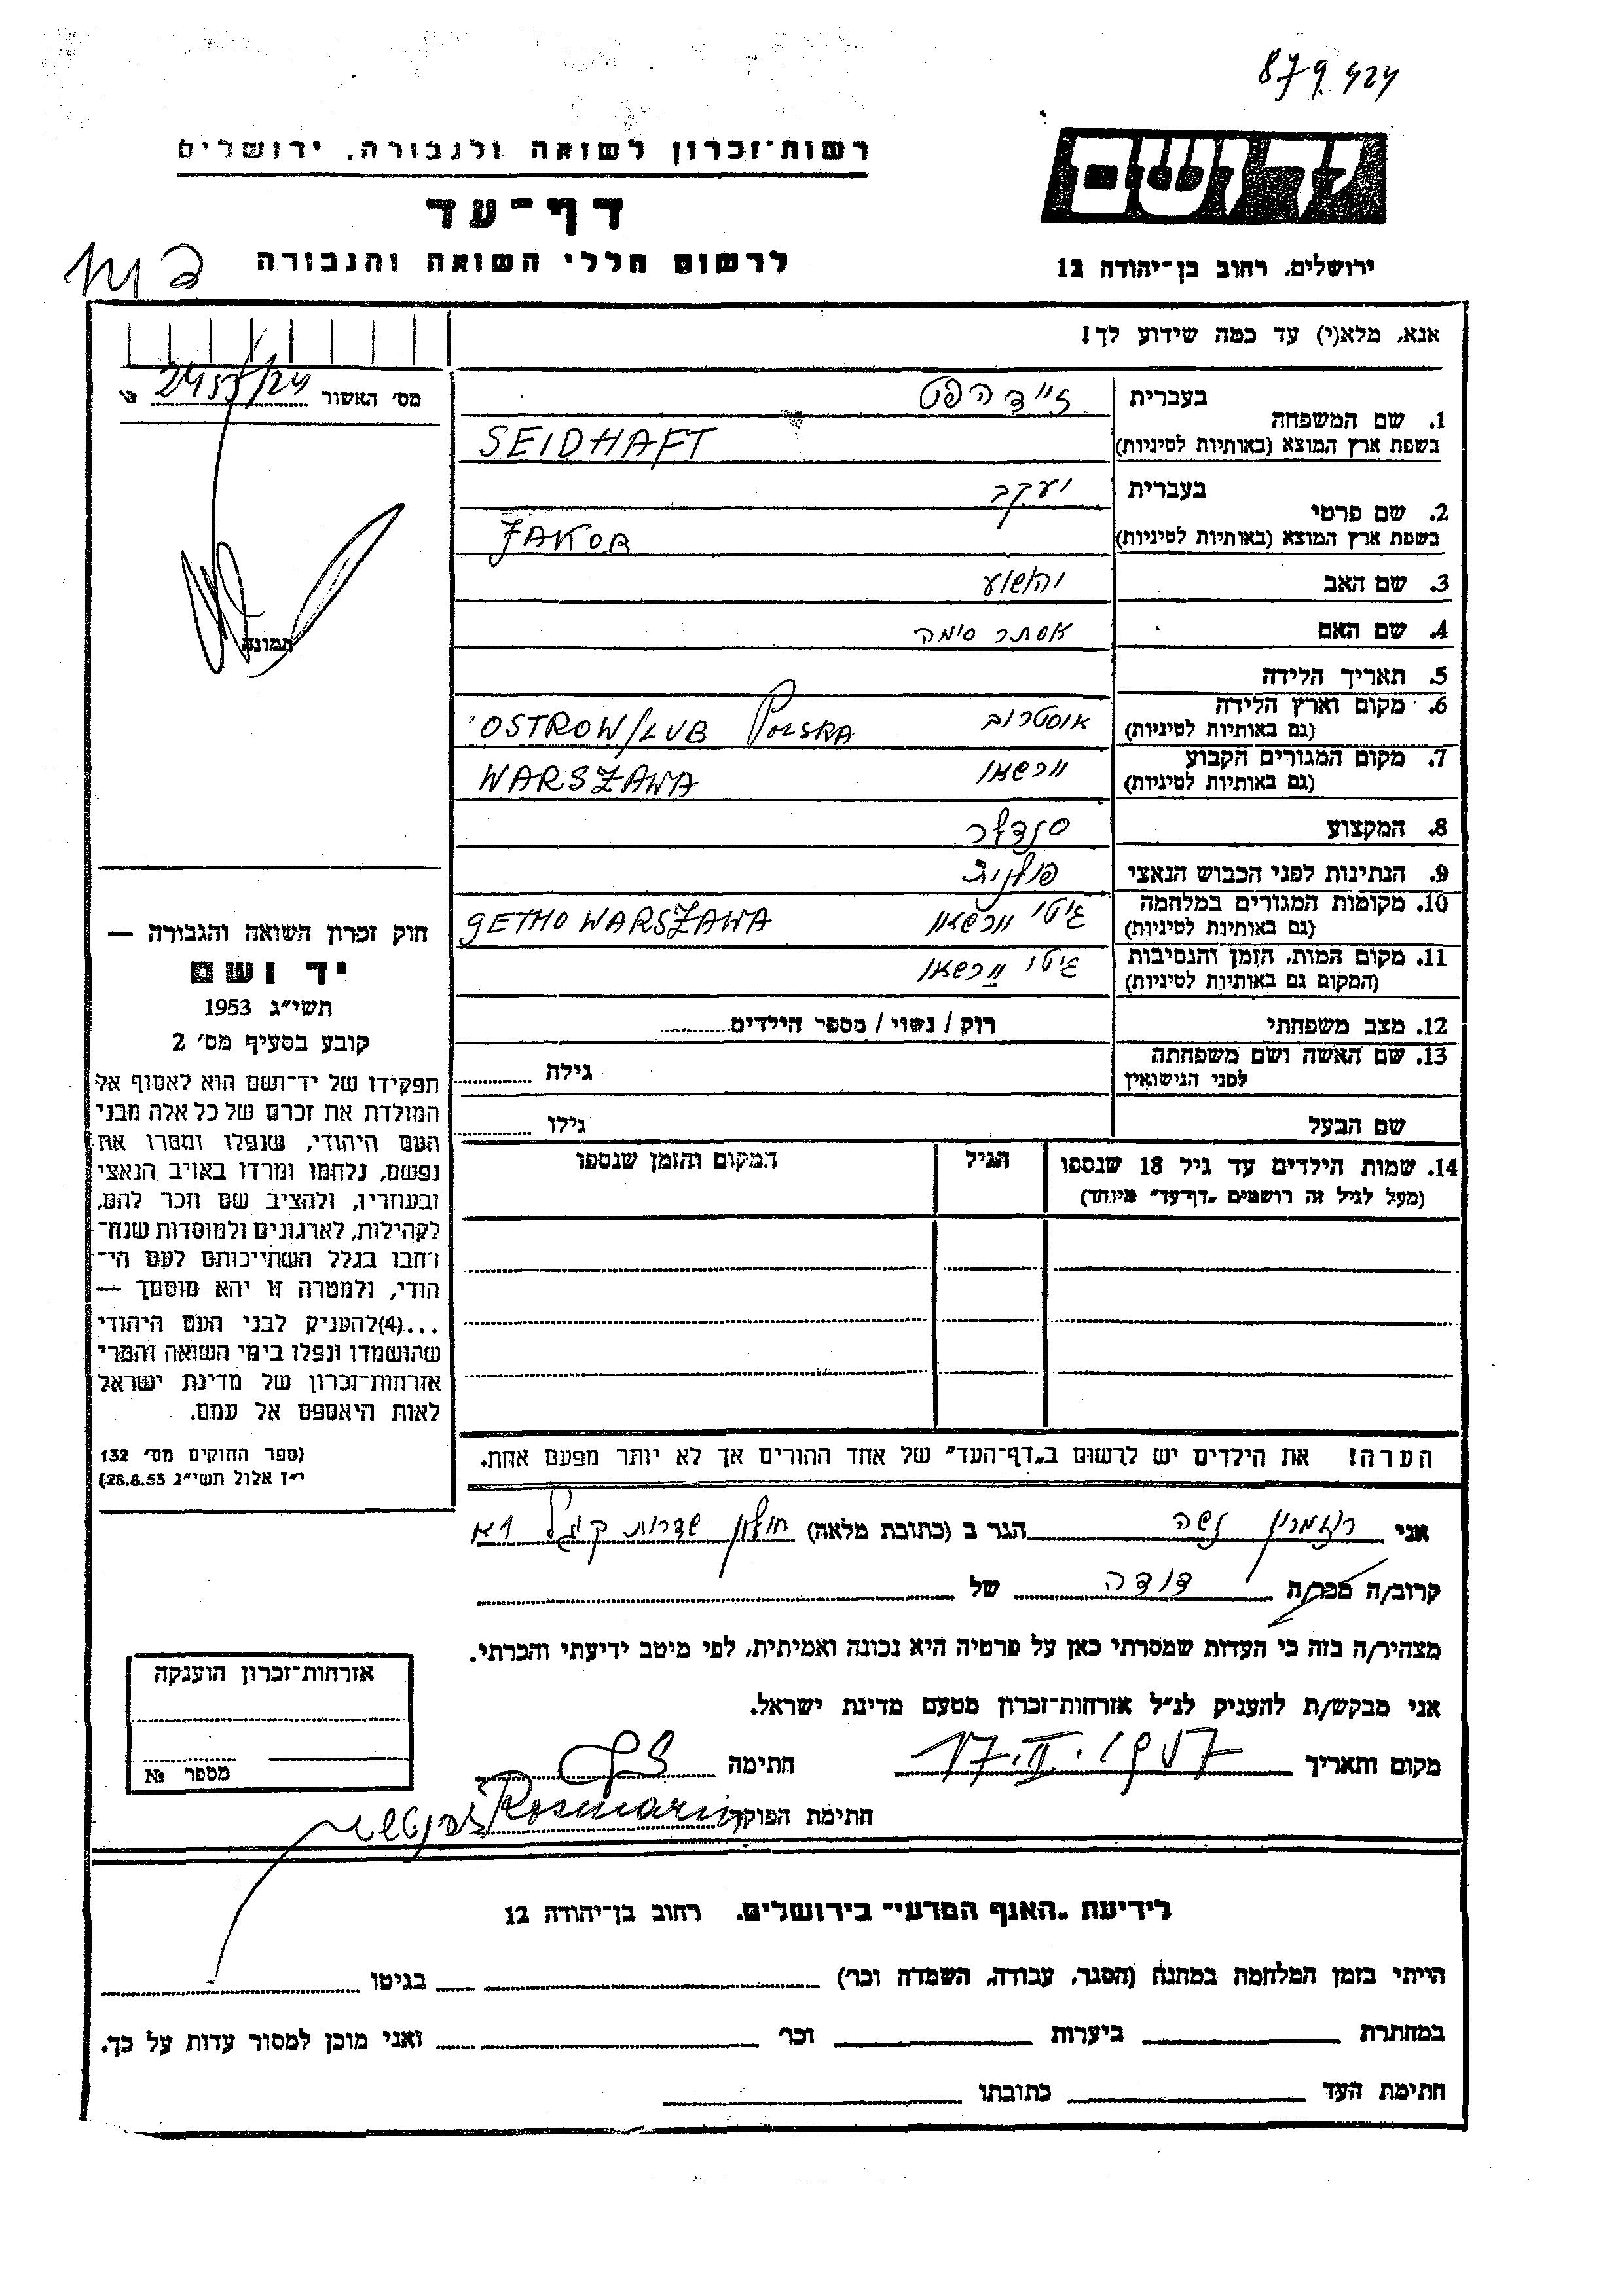 879424
רשות־זכרון לשואה ולגבורה, ירושלים
יד ושם
דף־עד
לרשום חללי השואה והגבורה
ירושלים, רחוב בן־יהודה 12
אנא, מלא(י) עד כמה שידוע לך!
מס׳ האשור 2455/24 №
תמונה
1. שם המשפחה
בעברית זיידהפט
בשפת ארץ המוצא (באותיות לטיניות) SEIDHAFT
2. שם פרטי
בעברית יעקב
בשפת ארץ המוצא (באותיות לטיניות) JAKOB
3. שם האב יהושוע
4. שם האם אסתר סימה
5. תאריך הלידה
6. מקום וארץ הלידה אוסטרוב OSTROW/LUB POLSKA
(גם באותיות לטיניות)
7. מקום המגורים הקבוע וורשאו WARSZAWA
(גם באותיות לטיניות)
8. המקצוע סנדלר
9. הנתינות לפני הכבוש הנאצי פולנית
10. מקומות המגורים במלחמה גיטו וורשאו GETHO WARSZAWA
(גם באותיות לטיניות)
11. מקום המות, הזמן והנסיבות גיטו וורשאו
(המקום גם באותיות לטיניות)
12. מצב משפחתי רוק / נשוי / מספר הילדים
13. שם האשה ושם משפחתה גילה
לפני הנישואין
שם הבעל גילו
14. שמות הילדים עד גיל 18 שנספו הגיל המקום והזמן שנספו
(מעל לגיל זה רושמים „דף־עד״ מיוחד)
הערה! את הילדים יש לרשום ב„דף־העד״ של אחד ההורים אך לא יותר מפעם אחת.
חוק זכרון השואה והגבורה —
יד ושם
תשי״ג 1953
קובע בסעיף מס׳ 2
תפקידו של יד־ושם הוא לאסוף אל
המולדת את זכרם של כל אלה מבני
העם היהודי, שנפלו ומסרו את
נפשם, נלחמו ומרדו באויב הנאצי
ובעוזריו, ולהציב שם וזכר להם,
לקהילות, לארגונים ולמוסדות שנח־
רבו בגלל השתייכותם לעם הי־
הודי, ולמטרה זו יהא מוסמך —
...(4)להעניק לבני העם היהודי
שהושמדו ונפלו בימי השואה והמרי
אזרחות־זכרון של מדינת ישראל
לאות היאספם אל עמם.
(ספר החוקים מס׳ 132
י״ז אלול תשי״ג 28.8.53)
אני רוזמרין זשה הגר ב (כתובת מלאה) חולון שדרות קוגל 1א
קרוב/ה מכר/ה דודה של
מצהיר/ה בזה כי העדות שמסרתי כאן על פרטיה היא נכונה ואמיתית, לפי מיטב ידיעתי והכרתי.
אני מבקש/ת להעניק לנ״ל אזרחות־זכרון מטעם מדינת ישראל.
מקום ותאריך 17.II.1957 חתימה
חתימת הפוקד Rosmarin
אזרחות־זכרון הוענקה
מספר №
לידיעת „האגף המדעי״ בירושלים. רחוב בן־יהודה 12
הייתי בזמן המלחמה במחנה (הסגר, עבודה, השמדה וכר׳) בגיטו
במחתרת ביערות וכר׳ ואני מוכן למסור עדות על כך.
חתימת העד כתובתו